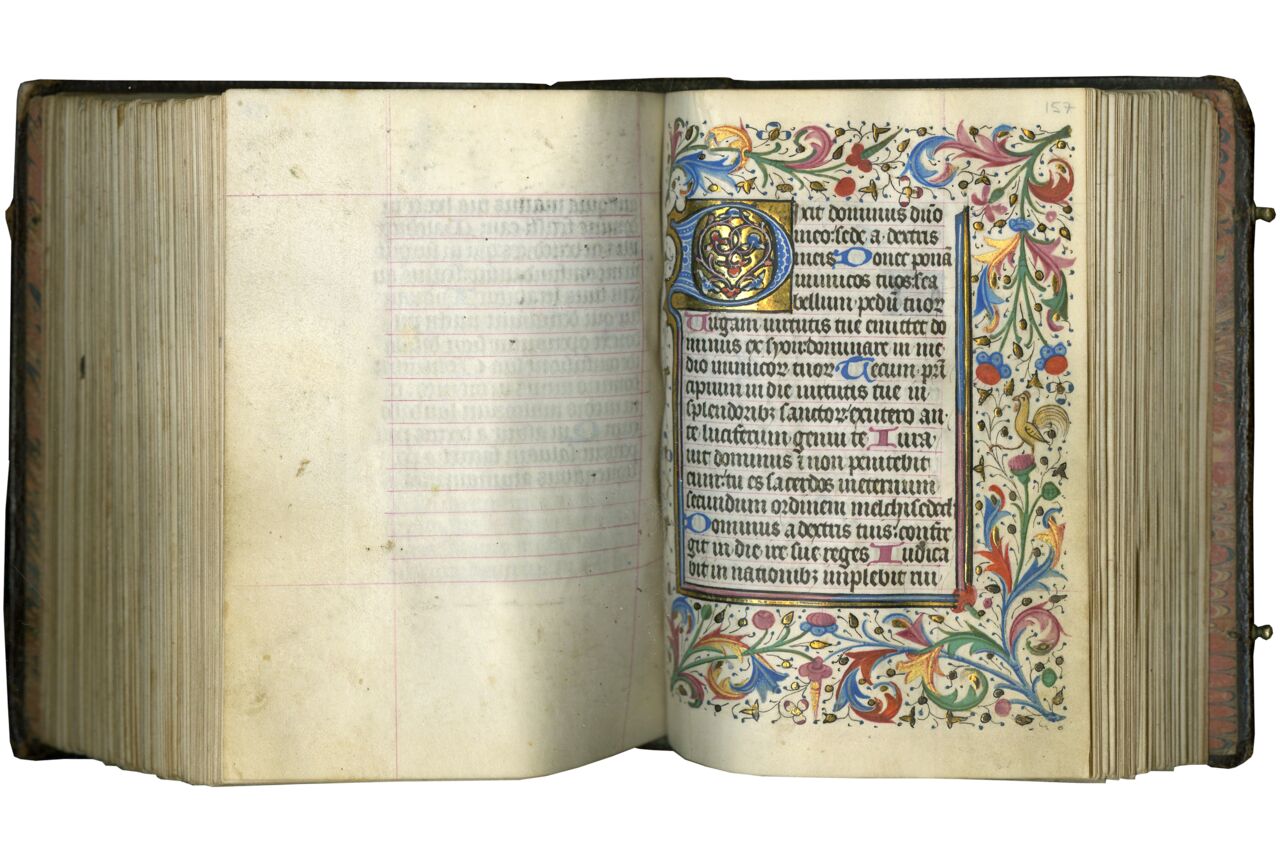 157
Dixit dominus dño
meo: sede a dextris
meis Donec ponã
inimicos tuos: sca
bellum pedũ tuoꝝ
Virgam uirtutis tue emittet do
minus ex syon: dominare in me
dio inimicoꝝ tuoꝝ Tecum prĩ
cipium in die uirtutis tue in
splendoribꝫ sanctoꝝ: ex utero an
te luciferum genui te Iura
uit dominus ⁊ non penitebit
eum: tu es sacerdos in eternum
secundum ordinem melchisedech
Dominus a dextris tuis: confre
git in die ire sue reges Iudica
bit in nationibꝫ implebit rui